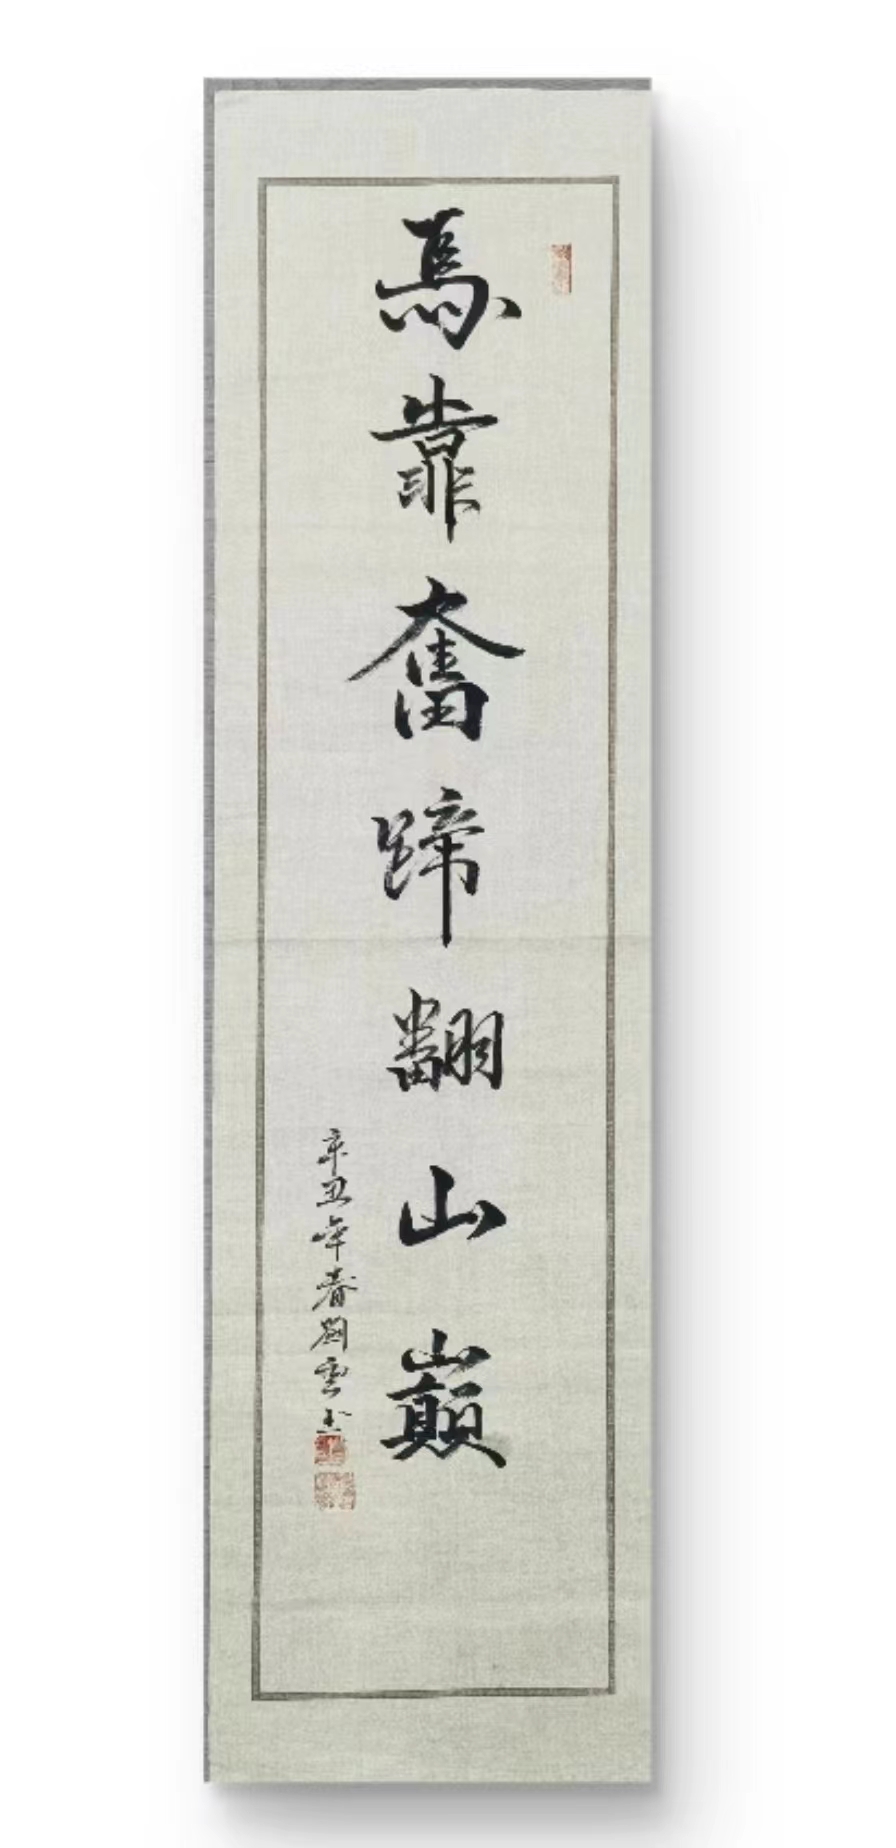 馬靠奮蹄翻山巔
辛丑年春剛雲书